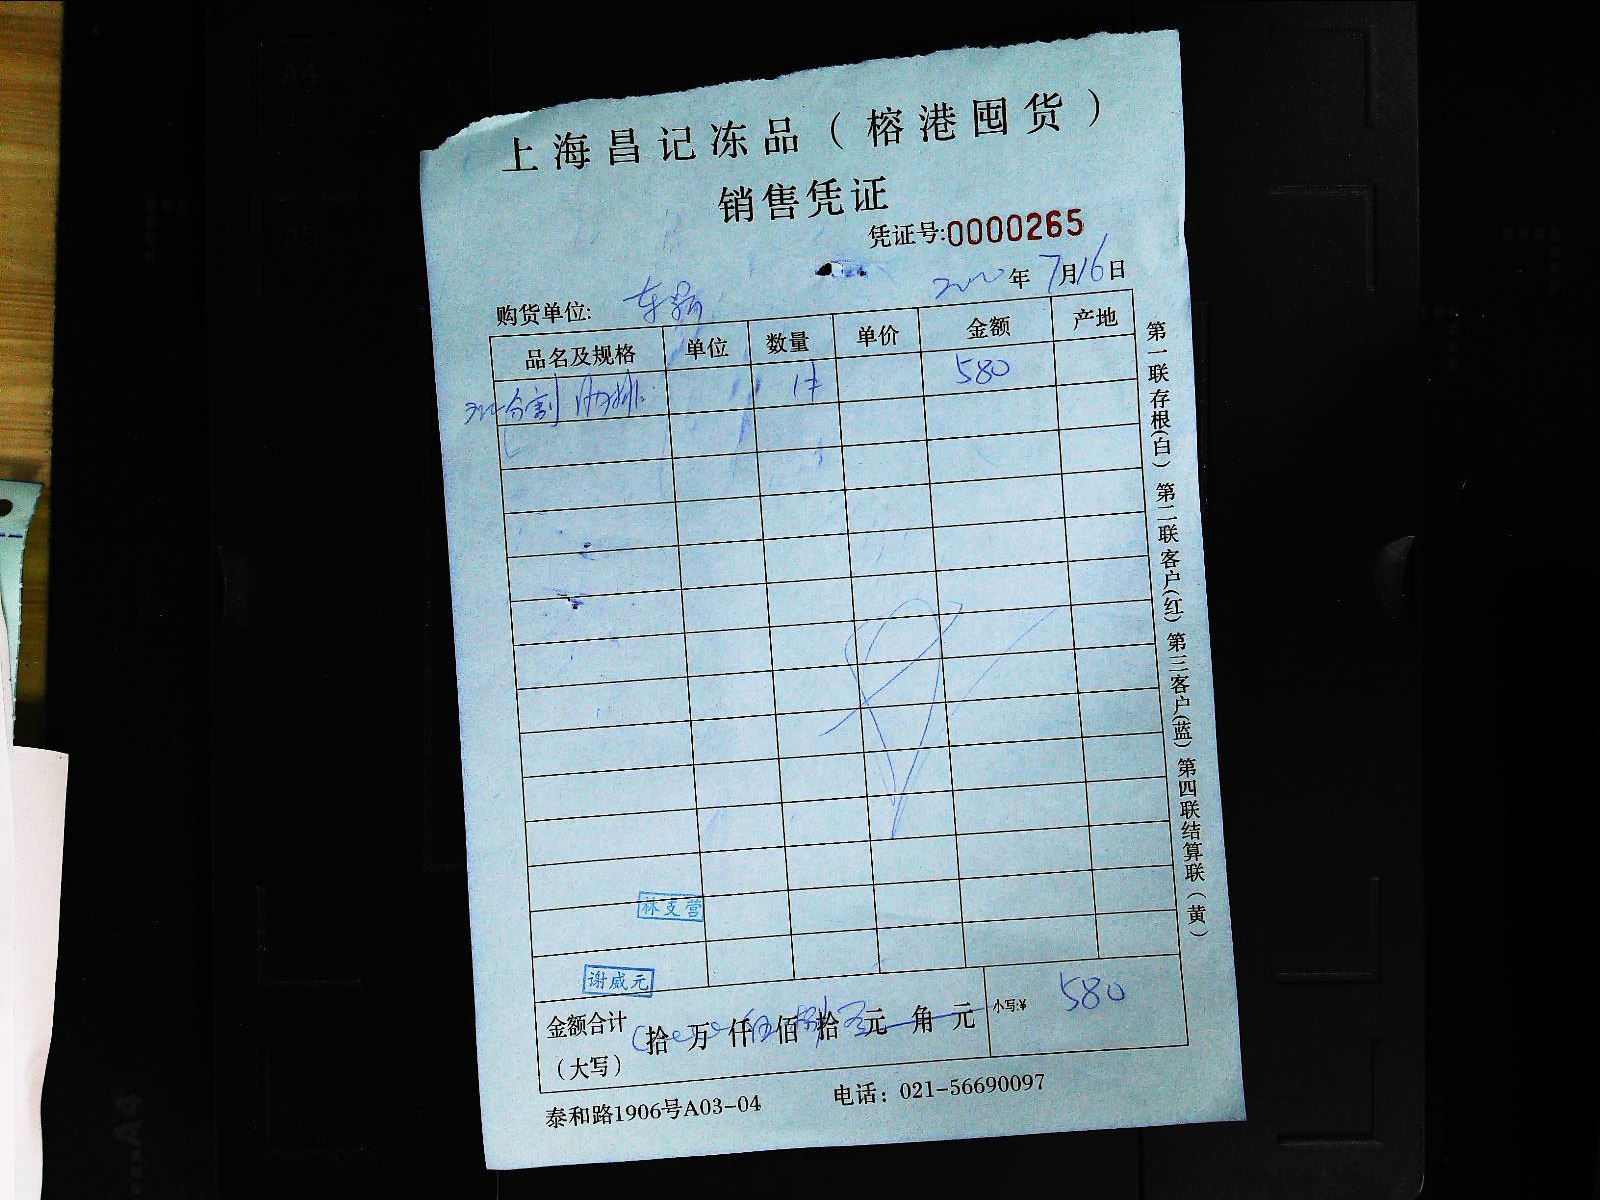 上海昌记冻品（榕港囤货）
销售凭证
凭证号:0000265
年7月16日
购货单位:
品名及规格 单位 数量 单价 金额 产地
分割肋排 1件 580
第一联存根(白) 第二联客户(红) 第三客户(蓝) 第四联结算联（黄）
林支营
谢威元
金额合计 拾万仟伍佰捌拾元角元 小写:¥ 580
（大写）
泰和路1906号A03-04 电话：021-56690097